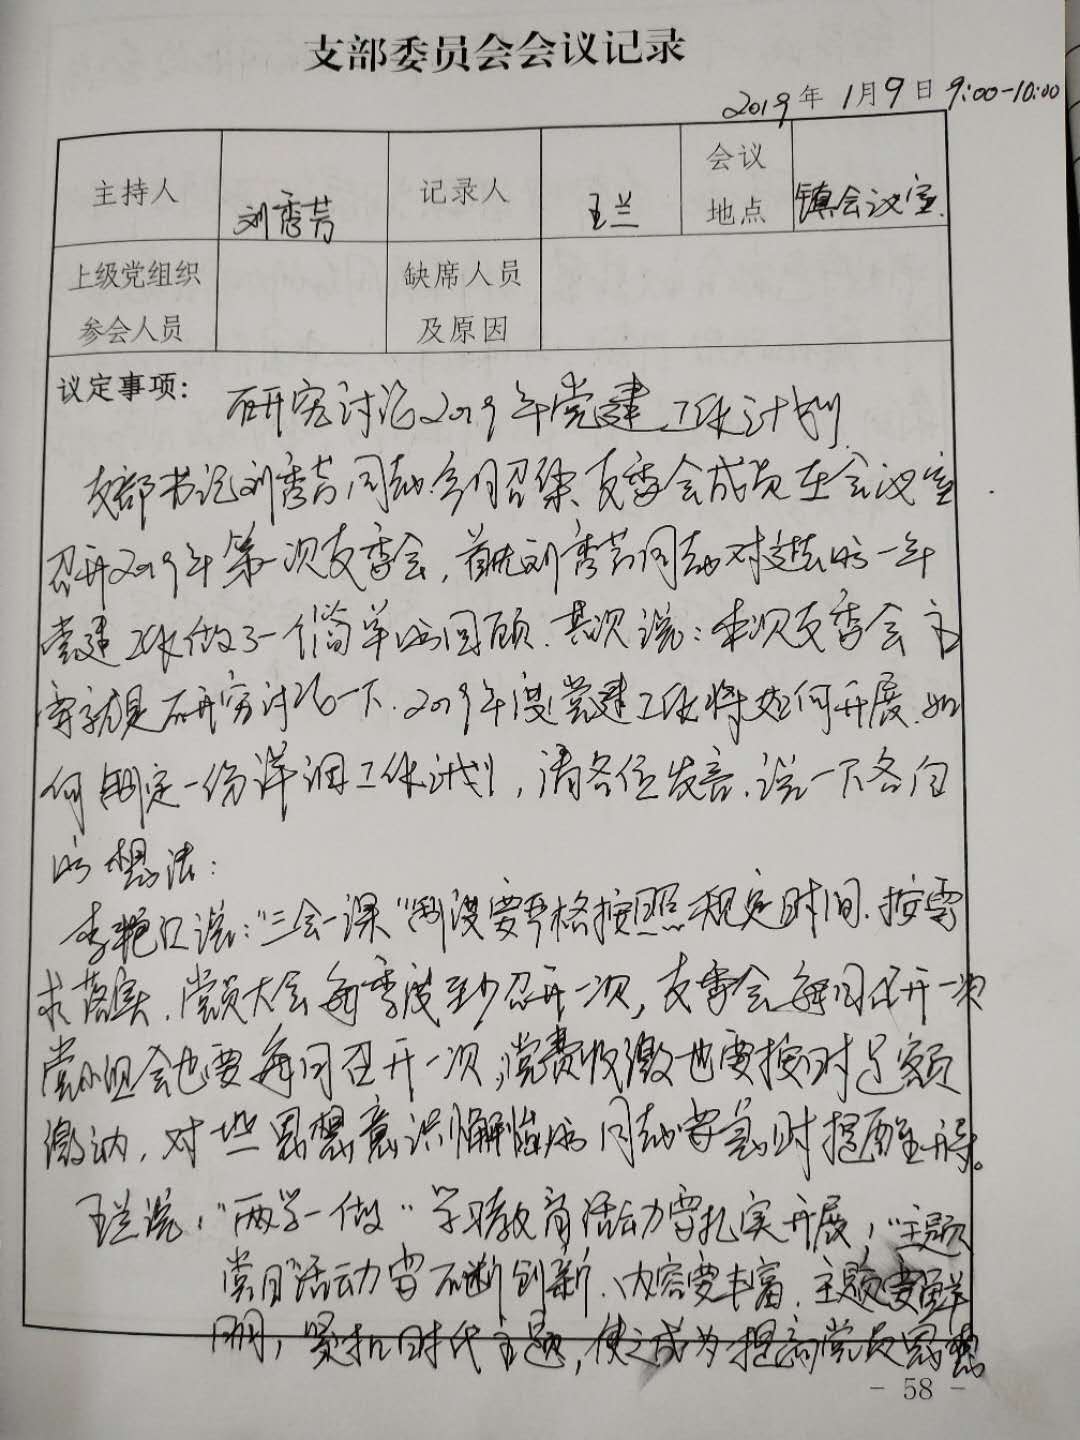 支部委员会会议记录
2019年1月9日 9:00-10:00
主持人 刘秀芳 记录人 王兰 会议地点 镇会议室.
上级党组织参会人员 缺席人员及原因
议定事项: 研究讨论2019年党建工作计划.
支部书记刘秀芳同志今日召集支委会成员在会议室
召开2019年第一次支委会,首先刘秀芳同志对过去的一年
党建工作做了一个简单的回顾.其次说:本次支委会主
要就是研究讨论一下.2019年度党建工作将如何开展.如
何制定一份详细工作计划,请各位发言.说一下各自
的想法:
李艳红说:"三会一课"制度要严格按照规定时间.按需
求落实.党员大会每季度至少召开一次,支委会每月召开一次
党小组会也要每月召开一次,党费收缴也要按时足额
缴纳,对一些思想意识懈怠的同志要及时提醒
王兰说,"两学一做"学习教育活动要扎实开展,"主题
党日"活动要不断创新、内容要丰富.主题要鲜
明,紧扣时代主题,使之成为提高党员思想
- 58 -